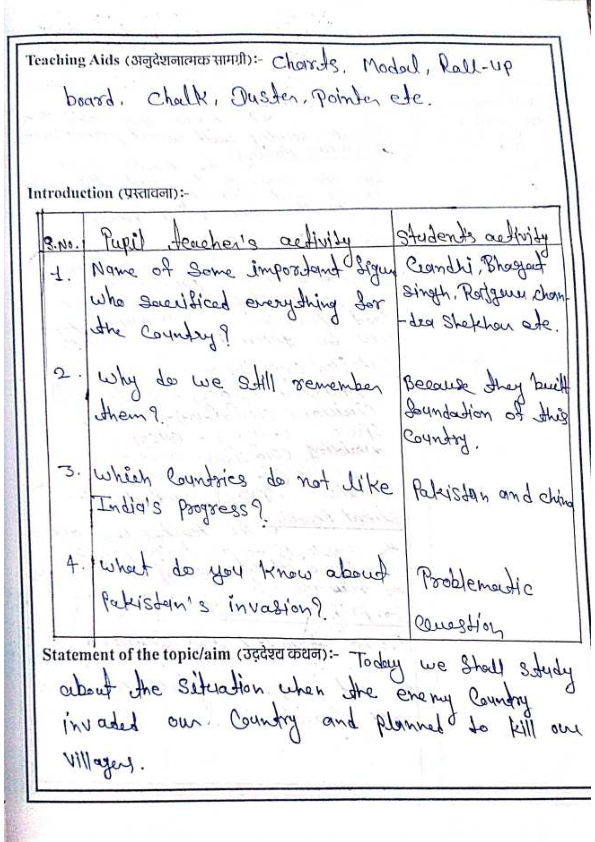 Teaching Aids (अनुदेशनात्मक सामग्री):- Charts, Model, Roll-up
board, Chalk, Duster, Pointer etc.
Introduction (प्रस्तावना):-
S.No. Pupil teacher's activity Students activity
1. Name of Some important figure Gandhi, Bhagat
who sacrificed everything for Singh, Rajguru, chan-
the Country? -dra Shekhar etc.
2. Why do we still remember Because they built
them? foundation of this
Country.
3. Which Countries do not like Pakistan and china
India's Progress?
4. What do you know about Problematic
Pakistan's invasion? Question
Statement of the topic/aim (उद्देश्य कथन):- Today we Shall study
about the Situation when the enemy Country
invaded our Country and planned to kill our
villagers.